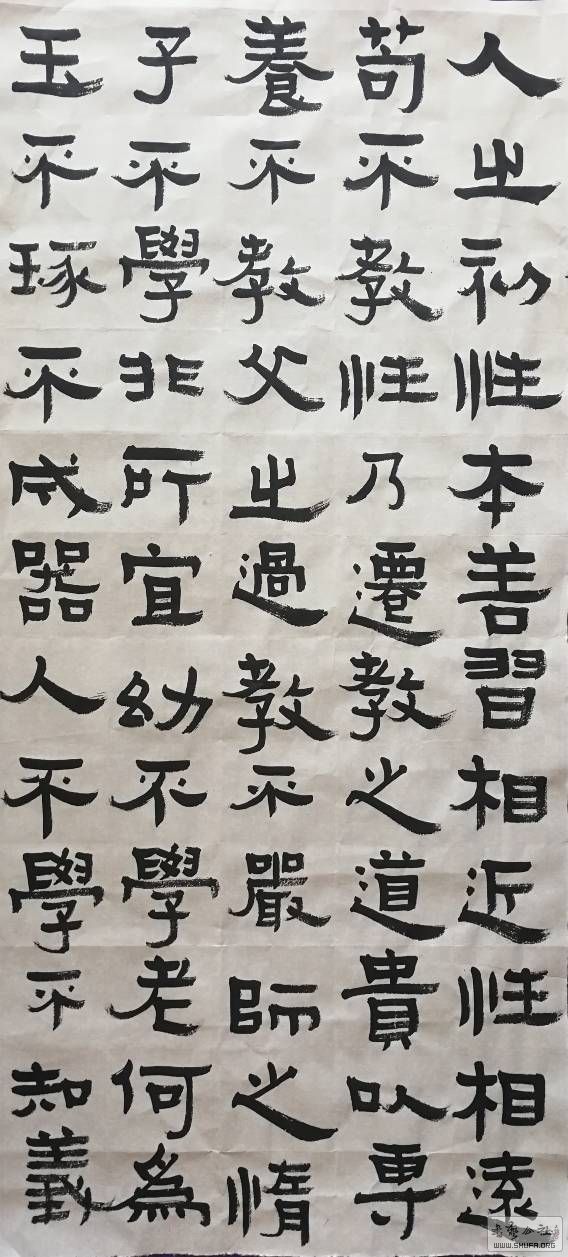 人之初性本善習相近性相遠
苟不教性乃遷教之道貴以專
養不教父之過教不嚴師之惰
子不學非所宜幼不學老何為
玉不琢不成器人不學不知義
WWW.SHUFA.ORG